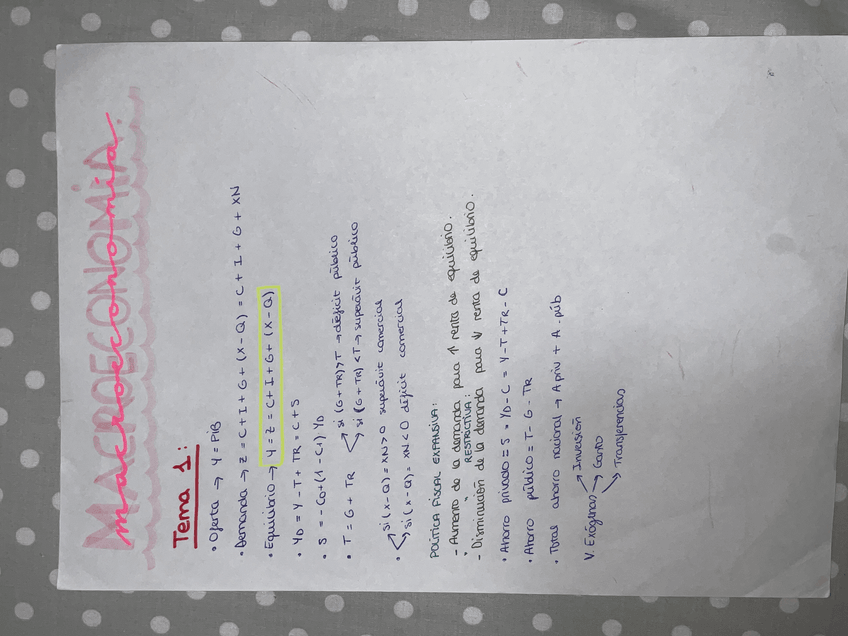 MACROECONOMÍA
macroeconomia.
Tema 1:
• Oferta → Y = PIB
• Demanda → Z = C + I + G + (X - Q) = C + I + G + XN
• Equilibrio → Y = Z = C + I + G + (X - Q)
• YD = Y - T + TR = C + S
• S = - C0 + (1 - C1) YD
• T = G + TR
si (G + TR) > T → déficit público
si (G + TR) < T → superávit público
• si (X - Q) = XN > 0 superávit comercial
si (X - Q) = XN < 0 déficit comercial
POLÍTICA FISCAL EXPANSIVA:
- Aumento de la demanda para ↑ renta de equilibrio.
" " RESTRICTIVA:
- Disminución de la demanda para ↓ renta de equilibrio.
• Ahorro privado = S = YD - C = Y - T + TR - C
• Ahorro público = T - G - TR
• Total ahorro nacional → A priv + A. púb
V. Exógenas
→ Inversión
→ Gasto
→ Transferencias